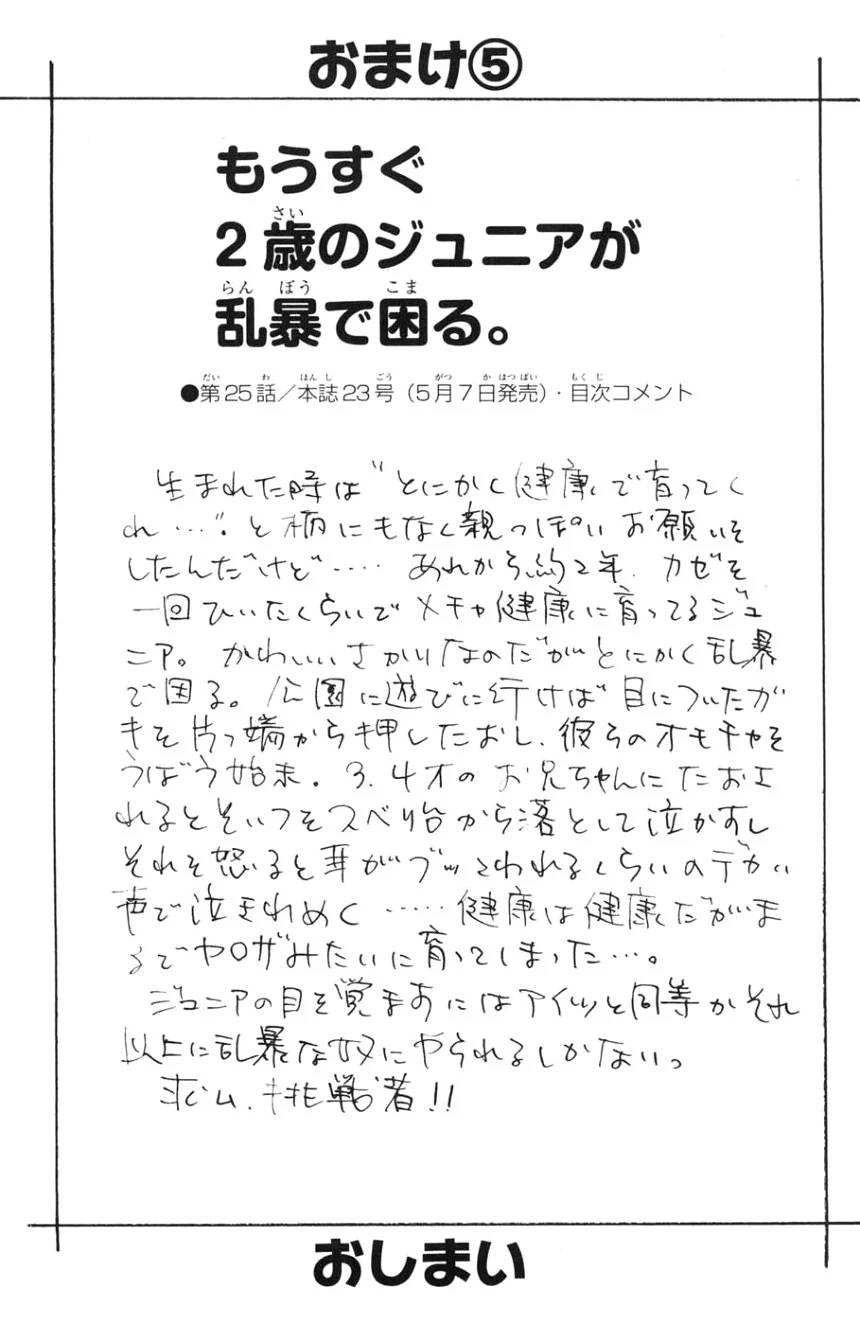 おまけ⑤
もうすぐ
2歳のジュニアが
乱暴で困る。
●第25話／本誌23号（5月7日発売）・目次コメント
生まれた時は"とにかく健康で育ってく
れ…"。と柄にもなく親っぽいお願いを
したんだけど…… あれから約2年、カゼを
一回ひいたくらいでメチャ健康に育ってるジュ
ニア。かわいいさかりなのだがとにかく乱暴
で困る。公園に遊びに行けば目についたガ
キを片っ端から押したおし、彼らのオモチャを
うばう始末。3、4才のお兄ちゃんにたおさ
れるとそいつをスベリ台から落として泣かすし
それを怒ると耳がブッこわれるくらいのデカい
声で泣きわめく……健康は健康だがま
るでヤクザみたいに育ってしまった…。
ジュニアの目を覚ますにはアイツと同等かそれ
以上に乱暴な奴にやられるしかないっ
求ム、挑戦者!!
おしまい